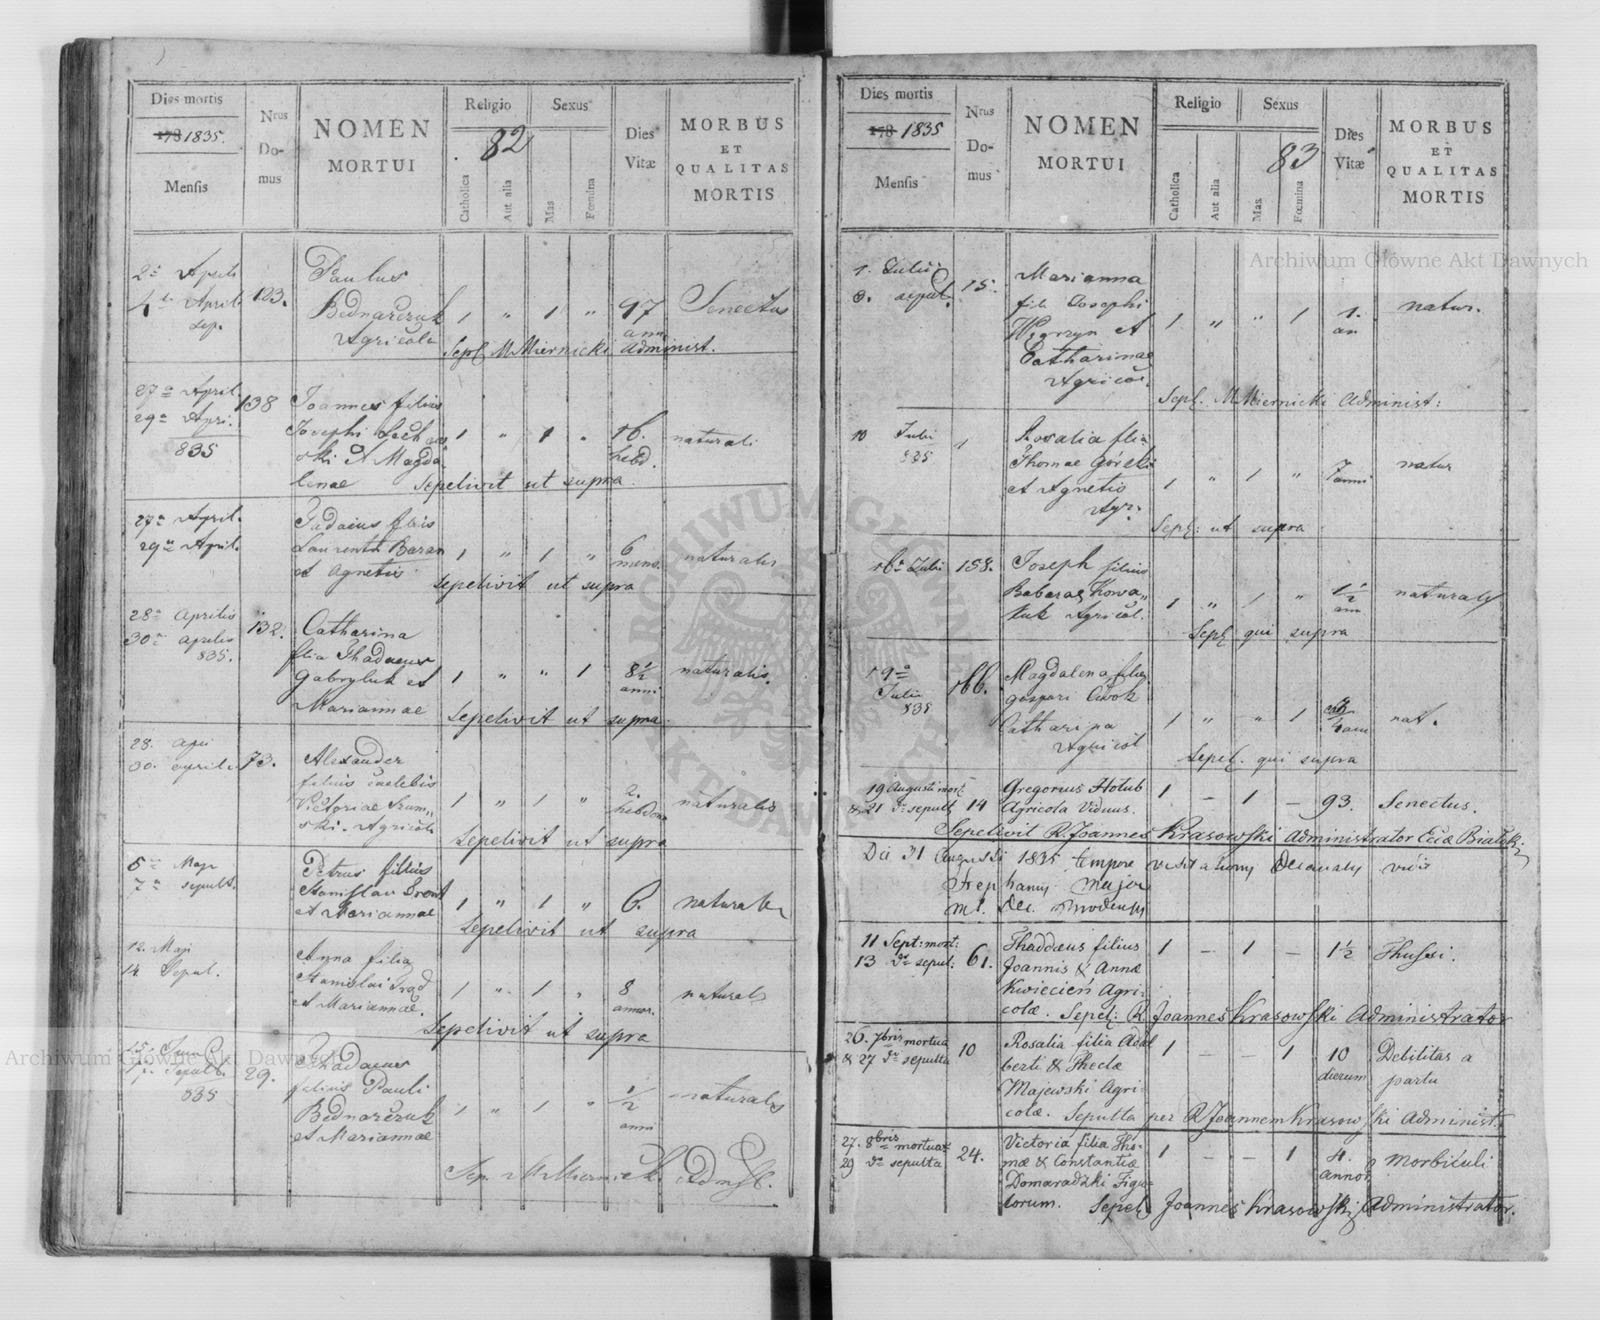 Dies mortis
1835.
Mensis
Nrus
Do-
mus
NOMEN
MORTUI
Religio
Catholica
Aut alia
Sexus
Mas
Fœmina
82
Dies
Vitæ
MORBUS
ET
QUALITAS
MORTIS
2a Aprili
4ta Aprili
sep.
123.
Paulus
Bednarczuk
Agricola
1 " 1 "
97
ann
Senectus
Sepel M Miernicki Administ.
27a April
29a Apri.
835
138
Joannes filius
Josephi Lech
ski et Magda
lenae
1 " 1 "
16.
hebd.
naturali
Sepelivit ut supra.
27a April.
29a April.
Tadaeus filius
Laurenti Baran
et Agnetis
1 " 1 "
6
mens.
naturalis
Sepelivit ut supra
28a Aprilis
30a Aprilis
835.
132.
Catharina
filia Thadaeus
Gabryluk et
Mariannae
1 " " 1
8½
anni
naturalis.
Sepelivit ut supra.
28. Apri
30. Aprilis
73.
Alexander
filius caelebis
Victoriae Szum„
ski. Agricola
1 " 1 "
2.
hebdom
naturalis
Sepelivit ut supra
5a Maji
7a sepult.
Petrus filius
Stanislai
et Mariannae
1 " 1 "
6.
naturalis
Sepelivit ut supra
12. Maji
14 Sepul.
Anna filia
Stanislai
et Mariannae.
1 " 1 "
8
annor.
naturalis
Sepelivit ut supra
835
29.
Thadaeus
filius Pauli
Bednarczuk
et Mariannae
1 " 1 "
½
anni
naturalis
Sep. M Miernicki
Dies mortis
1835
Mensis
Nrus
Do-
mus
NOMEN
MORTUI
Religio
Catholica
Aut alia
Sexus
Mas
Fœmina
83
Dies
Vitæ
MORBUS
ET
QUALITAS
MORTIS
1. Julii
3. sepul.
15.
Marianna
fil: Josephi
Węgrzyn et
Catharinae
Agricol.
1 " " 1
1.
an
natur.
Sepel. M Miernicki Administ:
10 Julii
835
1
Rosalia filia
Thomae Górski
et Agnetis
Agr.
1 " 1 "
7
anni
natur
Sepel: ut supra
16a Julii
158.
Joseph filius
Kowa„
luk Agricol.
1 " 1 "
1½
ann
naturalis
Sepel qui supra
19a
Julii
835
166.
Magdalena filia
gaspari Cwok
Catharina
Agricol
1 " " 1
nat.
Sepel. qui supra
19 Augusti mort
& 21 do sepult
14
Gregorius Hołub
Agricola Viduus.
1 – 1 –
93.
Senectus.
Sepelivit R. Joannes Krasowski Administrator
Die 31 Augusti 1835 tempore visitationis Decanalis vidi
Stephanus Major
11 Sept: mort:
13 do sepul:
61.
Thaddæus filius
Joannis & Annæ
Kwiecień Agri-
colæ.
1 – 1 –
1½
Thussi.
Sepel: R Joannes Krasowski Administrator
26. 7bris mortua
& 27 do sepulta
10
Rosalia filia Adal
berti & Theclæ
Majewski Agri
colæ.
1 – – 1
10
dierum
Debilitas a
partu
Sepulta per R Joannem Krasowski Administ.
27. 8bris mortua
29 do sepulta
24.
Victoria filia Tho-
mæ & Constantiæ
Domaradzki Figu-
lorum.
1 – – 1
4.
annor
Morbiculi
Sepel Joannes Krasowski Administrator.
Archiwum Główne Akt Dawnych
Archiwum Główne Akt Dawnych
ARCHIWUM GŁÓWNE
AKT DAWNYCH